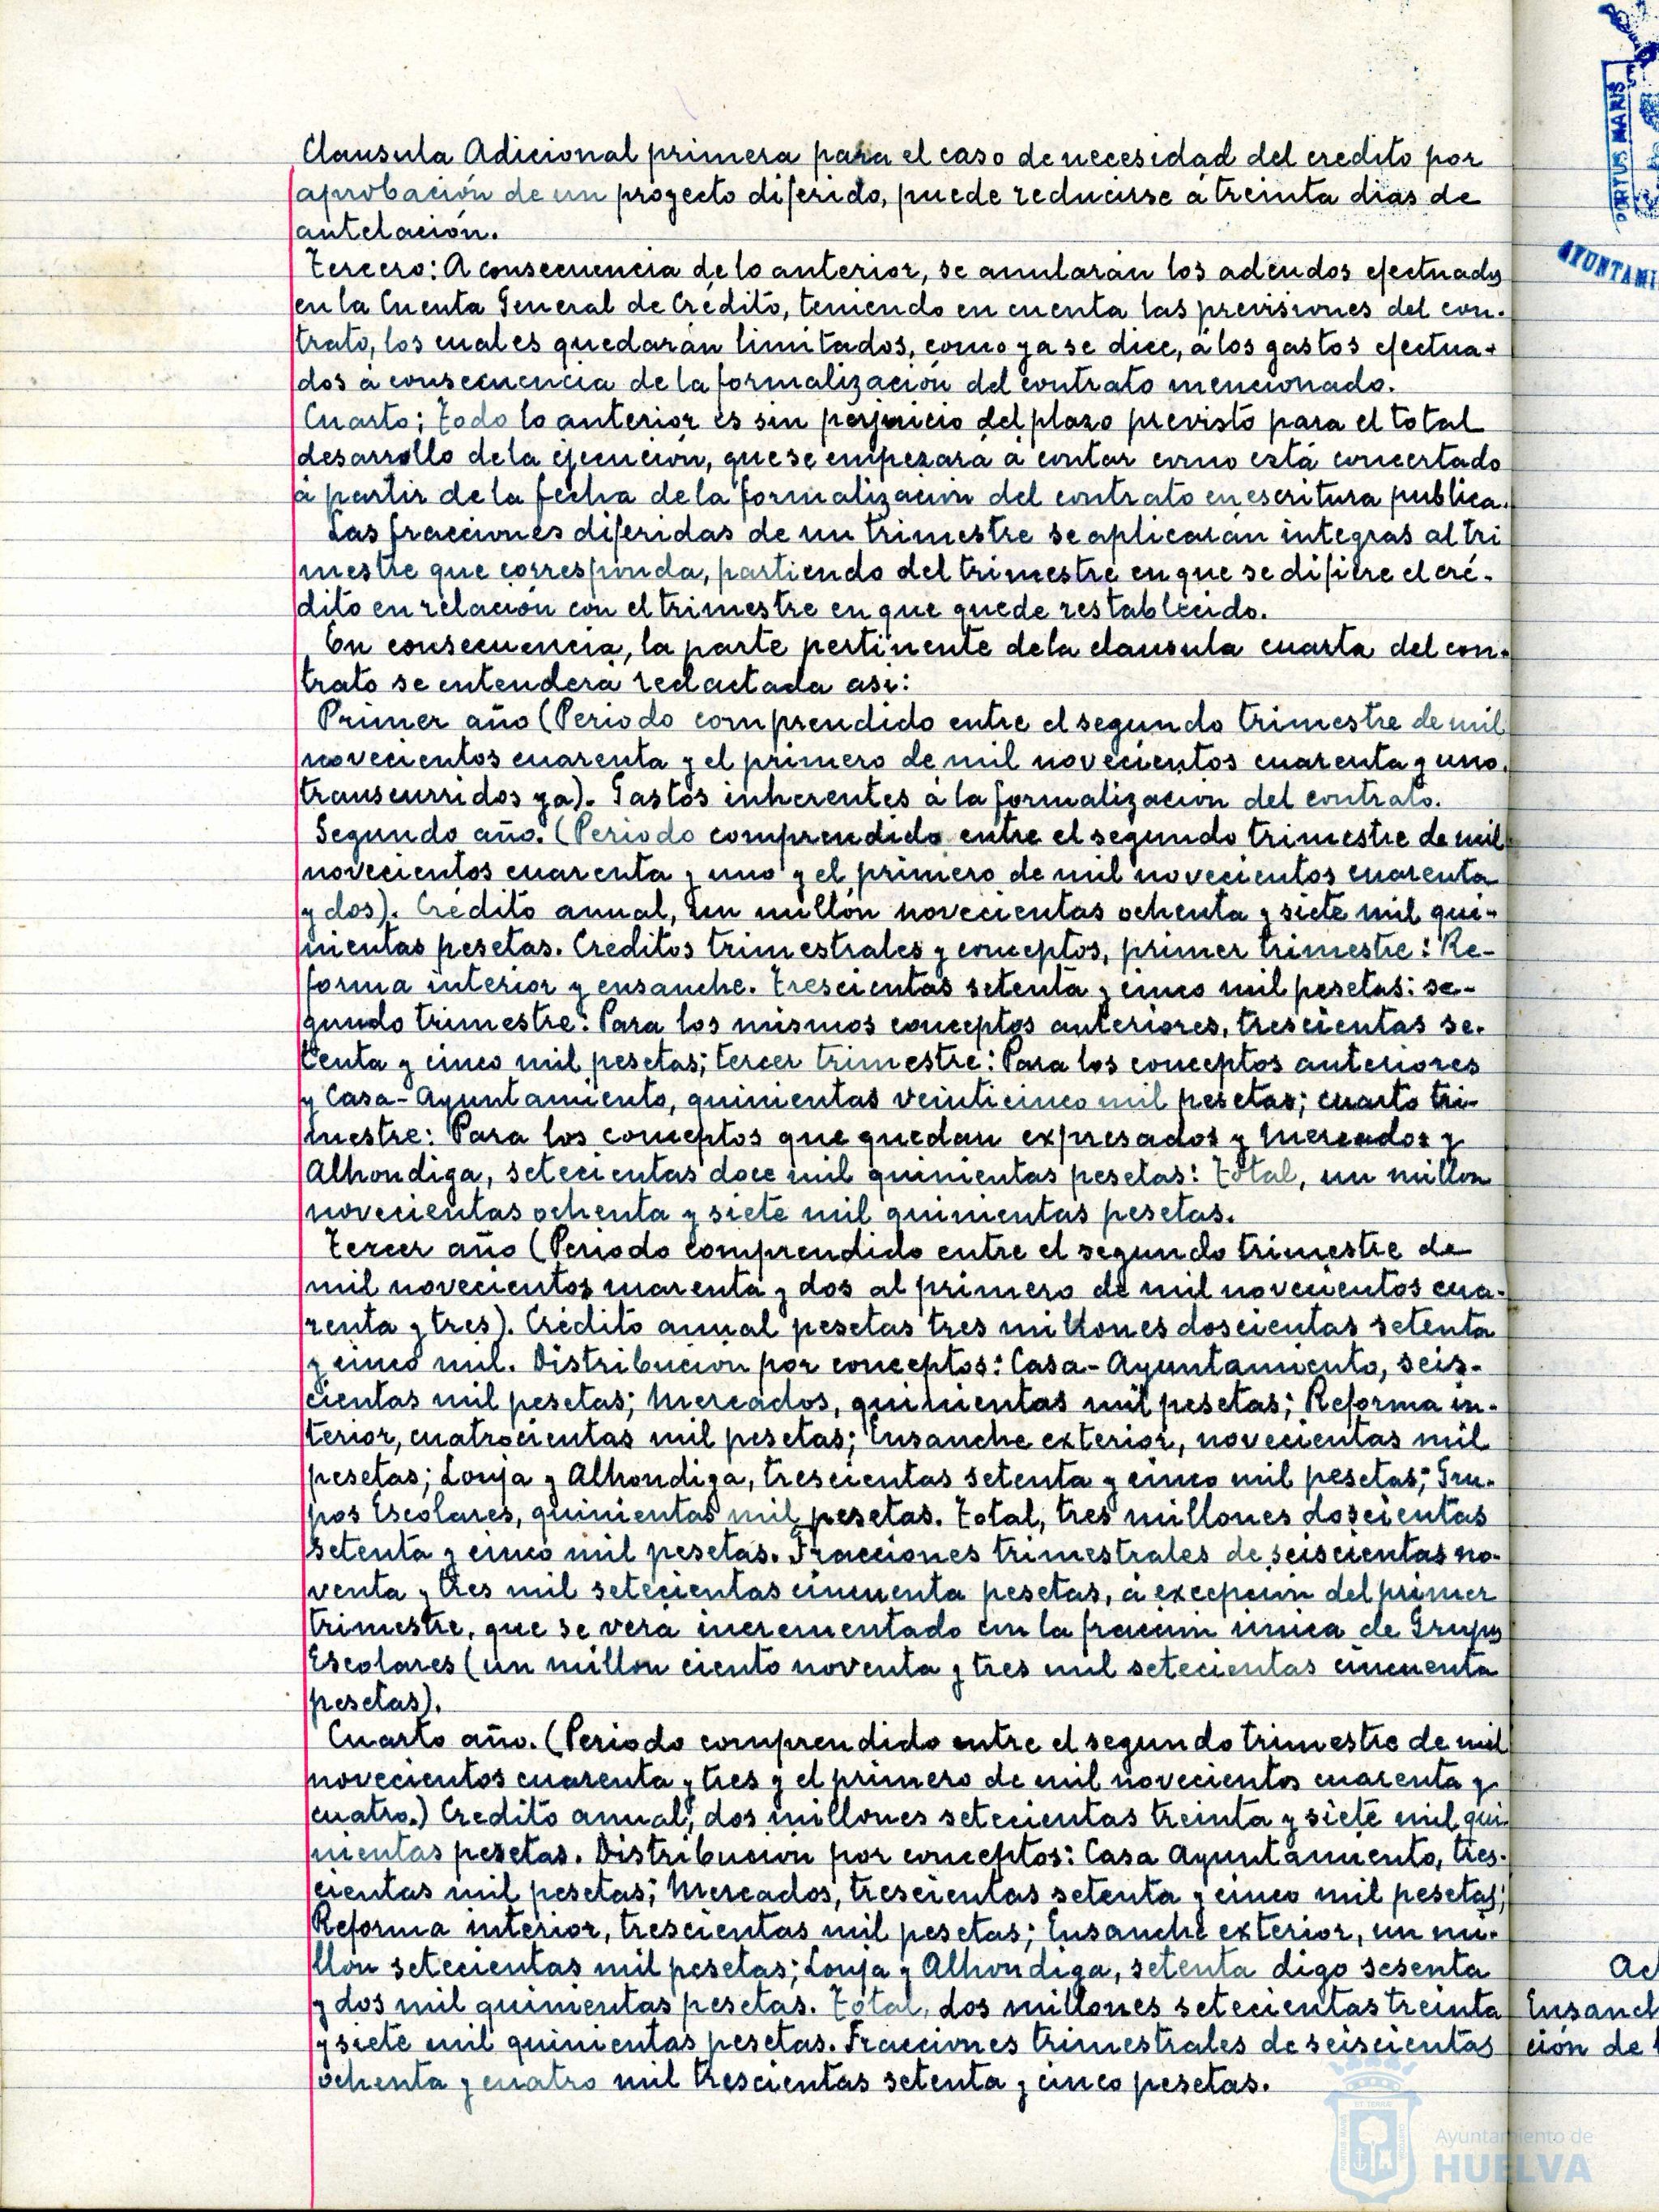 Clausula Adicional primera para el caso de necesidad del credito por
aprobación de un proyecto diferido, puede reducirse á treinta dias de
antelación.
Tercero: A consecuencia de lo anterior, se anularán los adeudos efectuados
en la Cuenta General de Crédito, teniendo en cuenta las previsiones del con-
trato, los cuales quedarán limitados, como ya se dice, á los gastos efectua-
dos á consecuencia de la formalización del contrato mencionado.
Cuarto: Todo lo anterior es sin perjuicio del plazo previsto para el total
desarrollo de la ejecución, que se empezará á contar como está concertado
á partir de la fecha de la formalización del contrato en escritura publica.
Las fracciones diferidas de un trimestre se aplicarán integras al tri
mestre que corresponda, partiendo del trimestre en que se difiere el cré-
dito en relación con el trimestre en que quede restablecido.
En consecuencia, la parte pertinente de la clausula cuarta del con-
trato se entenderá redactada asi:
Primer año (Periodo comprendido entre el segundo trimestre de mil
novecientos cuarenta y el primero de mil novecientos cuarenta y uno,
transcurridos ya). Gastos inherentes á la formalización del contrato.
Segundo año. (Periodo comprendido entre el segundo trimestre de mil
novecientos cuarenta y uno y el primero de mil novecientos cuarenta
y dos). Crédito anual, un millón novecientas ochenta y siete mil qui-
nientas pesetas. Créditos trimestrales y conceptos, primer trimestre: Re-
forma interior y ensanche. Trescientas setenta y cinco mil pesetas: se-
gundo trimestre: Para los mismos conceptos anteriores, trescientas se-
tenta y cinco mil pesetas; tercer trimestre: Para los conceptos anteriores
y Casa-Ayuntamiento, quinientas veinticinco mil pesetas; cuarto tri-
mestre: Para los conceptos que quedan expresados y Mercados y
Alhondiga, setecientas doce mil quinientas pesetas: Total, un millon
novecientas ochenta y siete mil quinientas pesetas.
Tercer año (Periodo comprendido entre el segundo trimestre de
mil novecientos cuarenta y dos al primero de mil novecientos cua-
renta y tres). Crédito anual pesetas tres millones doscientas setenta
y cinco mil. Distribución por conceptos: Casa-Ayuntamiento, seis-
cientas mil pesetas; Mercados, quinientas mil pesetas; Reforma in-
terior, cuatrocientas mil pesetas; Ensanche exterior, novecientas mil
pesetas; Lonja y Alhondiga, trescientas setenta y cinco mil pesetas; Gru-
pos Escolares, quinientas mil pesetas. Total, tres millones doscientas
setenta y cinco mil pesetas. Fracciones trimestrales de seiscientas no-
venta y tres mil setecientas cincuenta pesetas, á excepción del primer
trimestre, que se verá incrementado con la fracción única de Grupos
Escolares (un millon ciento noventa y tres mil setecientas cincuenta
pesetas).
Cuarto año. (Periodo comprendido entre el segundo trimestre de mil
novecientos cuarenta y tres y el primero de mil novecientos cuarenta y
cuatro.) Credito anual, dos millones setecientas treinta y siete mil qui-
nientas pesetas. Distribución por conceptos: Casa Ayuntamiento, tres-
cientas mil pesetas; Mercados, trescientas setenta y cinco mil pesetas;
Reforma interior, trescientas mil pesetas; Ensanche exterior, un mi-
llón setecientas mil pesetas; Lonja y Alhondiga, setenta digo sesenta
y dos mil quinientas pesetas. Total, dos millones setecientas treinta
y siete mil quinientas pesetas. Fracciones trimestrales de seiscientas
ochenta y cuatro mil trescientas setenta y cinco pesetas.
PORTUS MARIS
AYUNTAMI
Ac
Ensanch
ción de
Ayuntamiento de
HUELVA